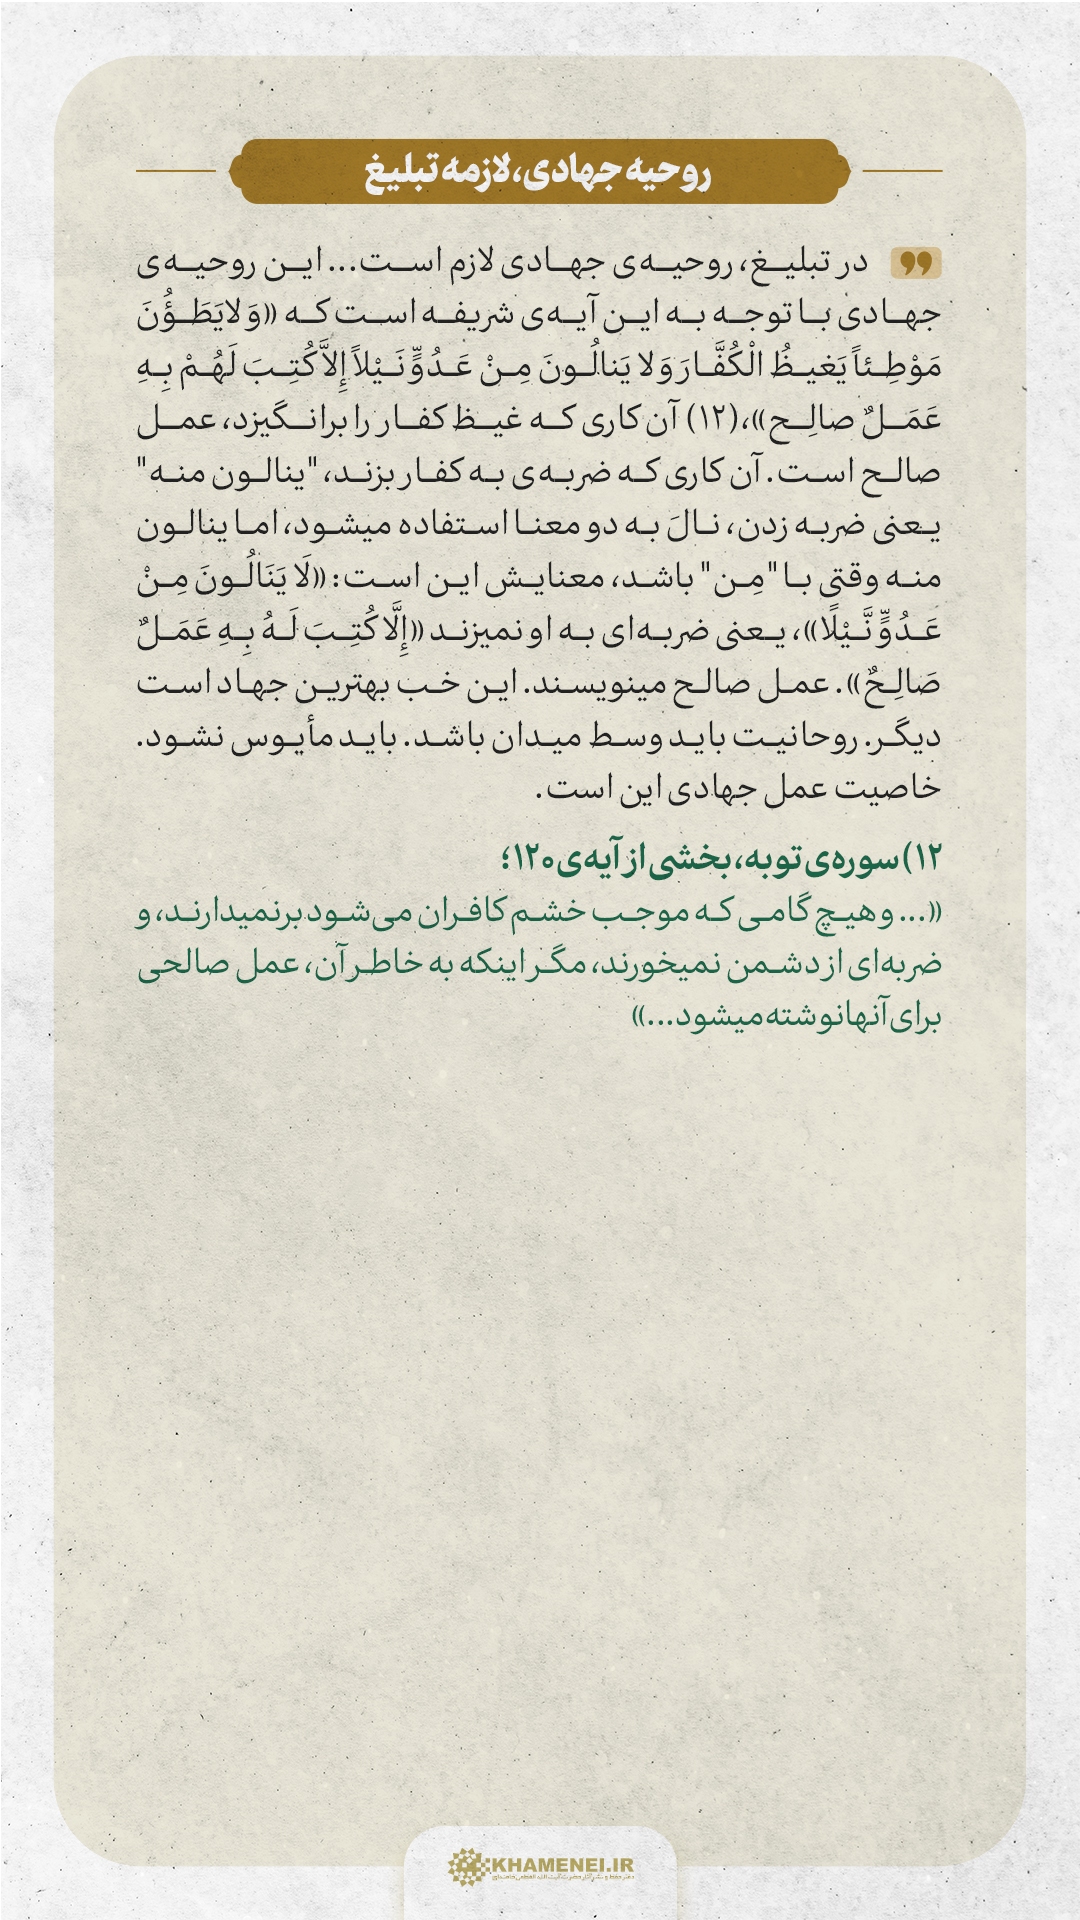 روحیه جهادی، لازمه تبلیغ
در تبلیغ، روحیه‌ی جهادی لازم است... این روحیه‌ی
جهادی با توجه به این آیه‌ی شریفه است که «وَ لایَطَؤُنَ
مَوْطِئاً یَغیظُ الْکُفَّارَ وَ لا یَنالُونَ مِنْ عَدُوٍّ نَیْلاً إِلاَّ کُتِبَ لَهُمْ بِهِ
عَمَلٌ صالِح»،(۱۲) آن کاری که غیظ کفار را برانگیزد، عمل
صالح است. آن کاری که ضربه‌ی به کفار بزند، "ینالون منه"
یعنی ضربه زدن، نالَ به دو معنا استفاده میشود، اما ینالون
منه وقتی با "مِن" باشد، معنایش این است: «لَا یَنَالُونَ مِنْ
عَدُوٍّ نَّیْلًا»، یعنی ضربه‌ای به او نمیزند «إِلَّا کُتِبَ لَهُ بِهِ عَمَلٌ
صَالِحٌ». عمل صالح مینویسند. این خب بهترین جهاد است
دیگر. روحانیت باید وسط میدان باشد. باید مأیوس نشود.
خاصیت عمل جهادی این است.
۱۲) سوره‌ی توبه، بخشی از آیه‌ی ۱۲۰؛
«... و هیچ گامی که موجب خشم کافران می‌شود برنمیدارند، و
ضربه‌ای از دشمن نمیخورند، مگر اینکه به خاطر آن، عمل صالحی
برای آنها نوشته میشود...»
KHAMENEI.IR
دفتر حفظ و نشر آثار حضرت آیت‌الله العظمی خامنه‌ای